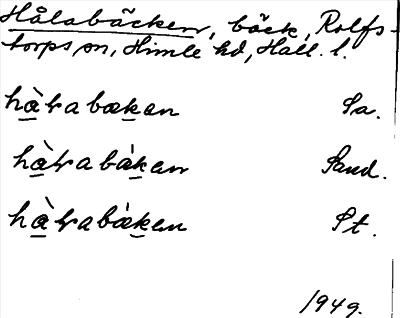 Hålabäcken, bäck, Rolfs-
torps sn, Himle hd, Hall. l.
hàɽabækan Sa.
hàɽabàkan Sand.
hàɽabàkan St.
1949.